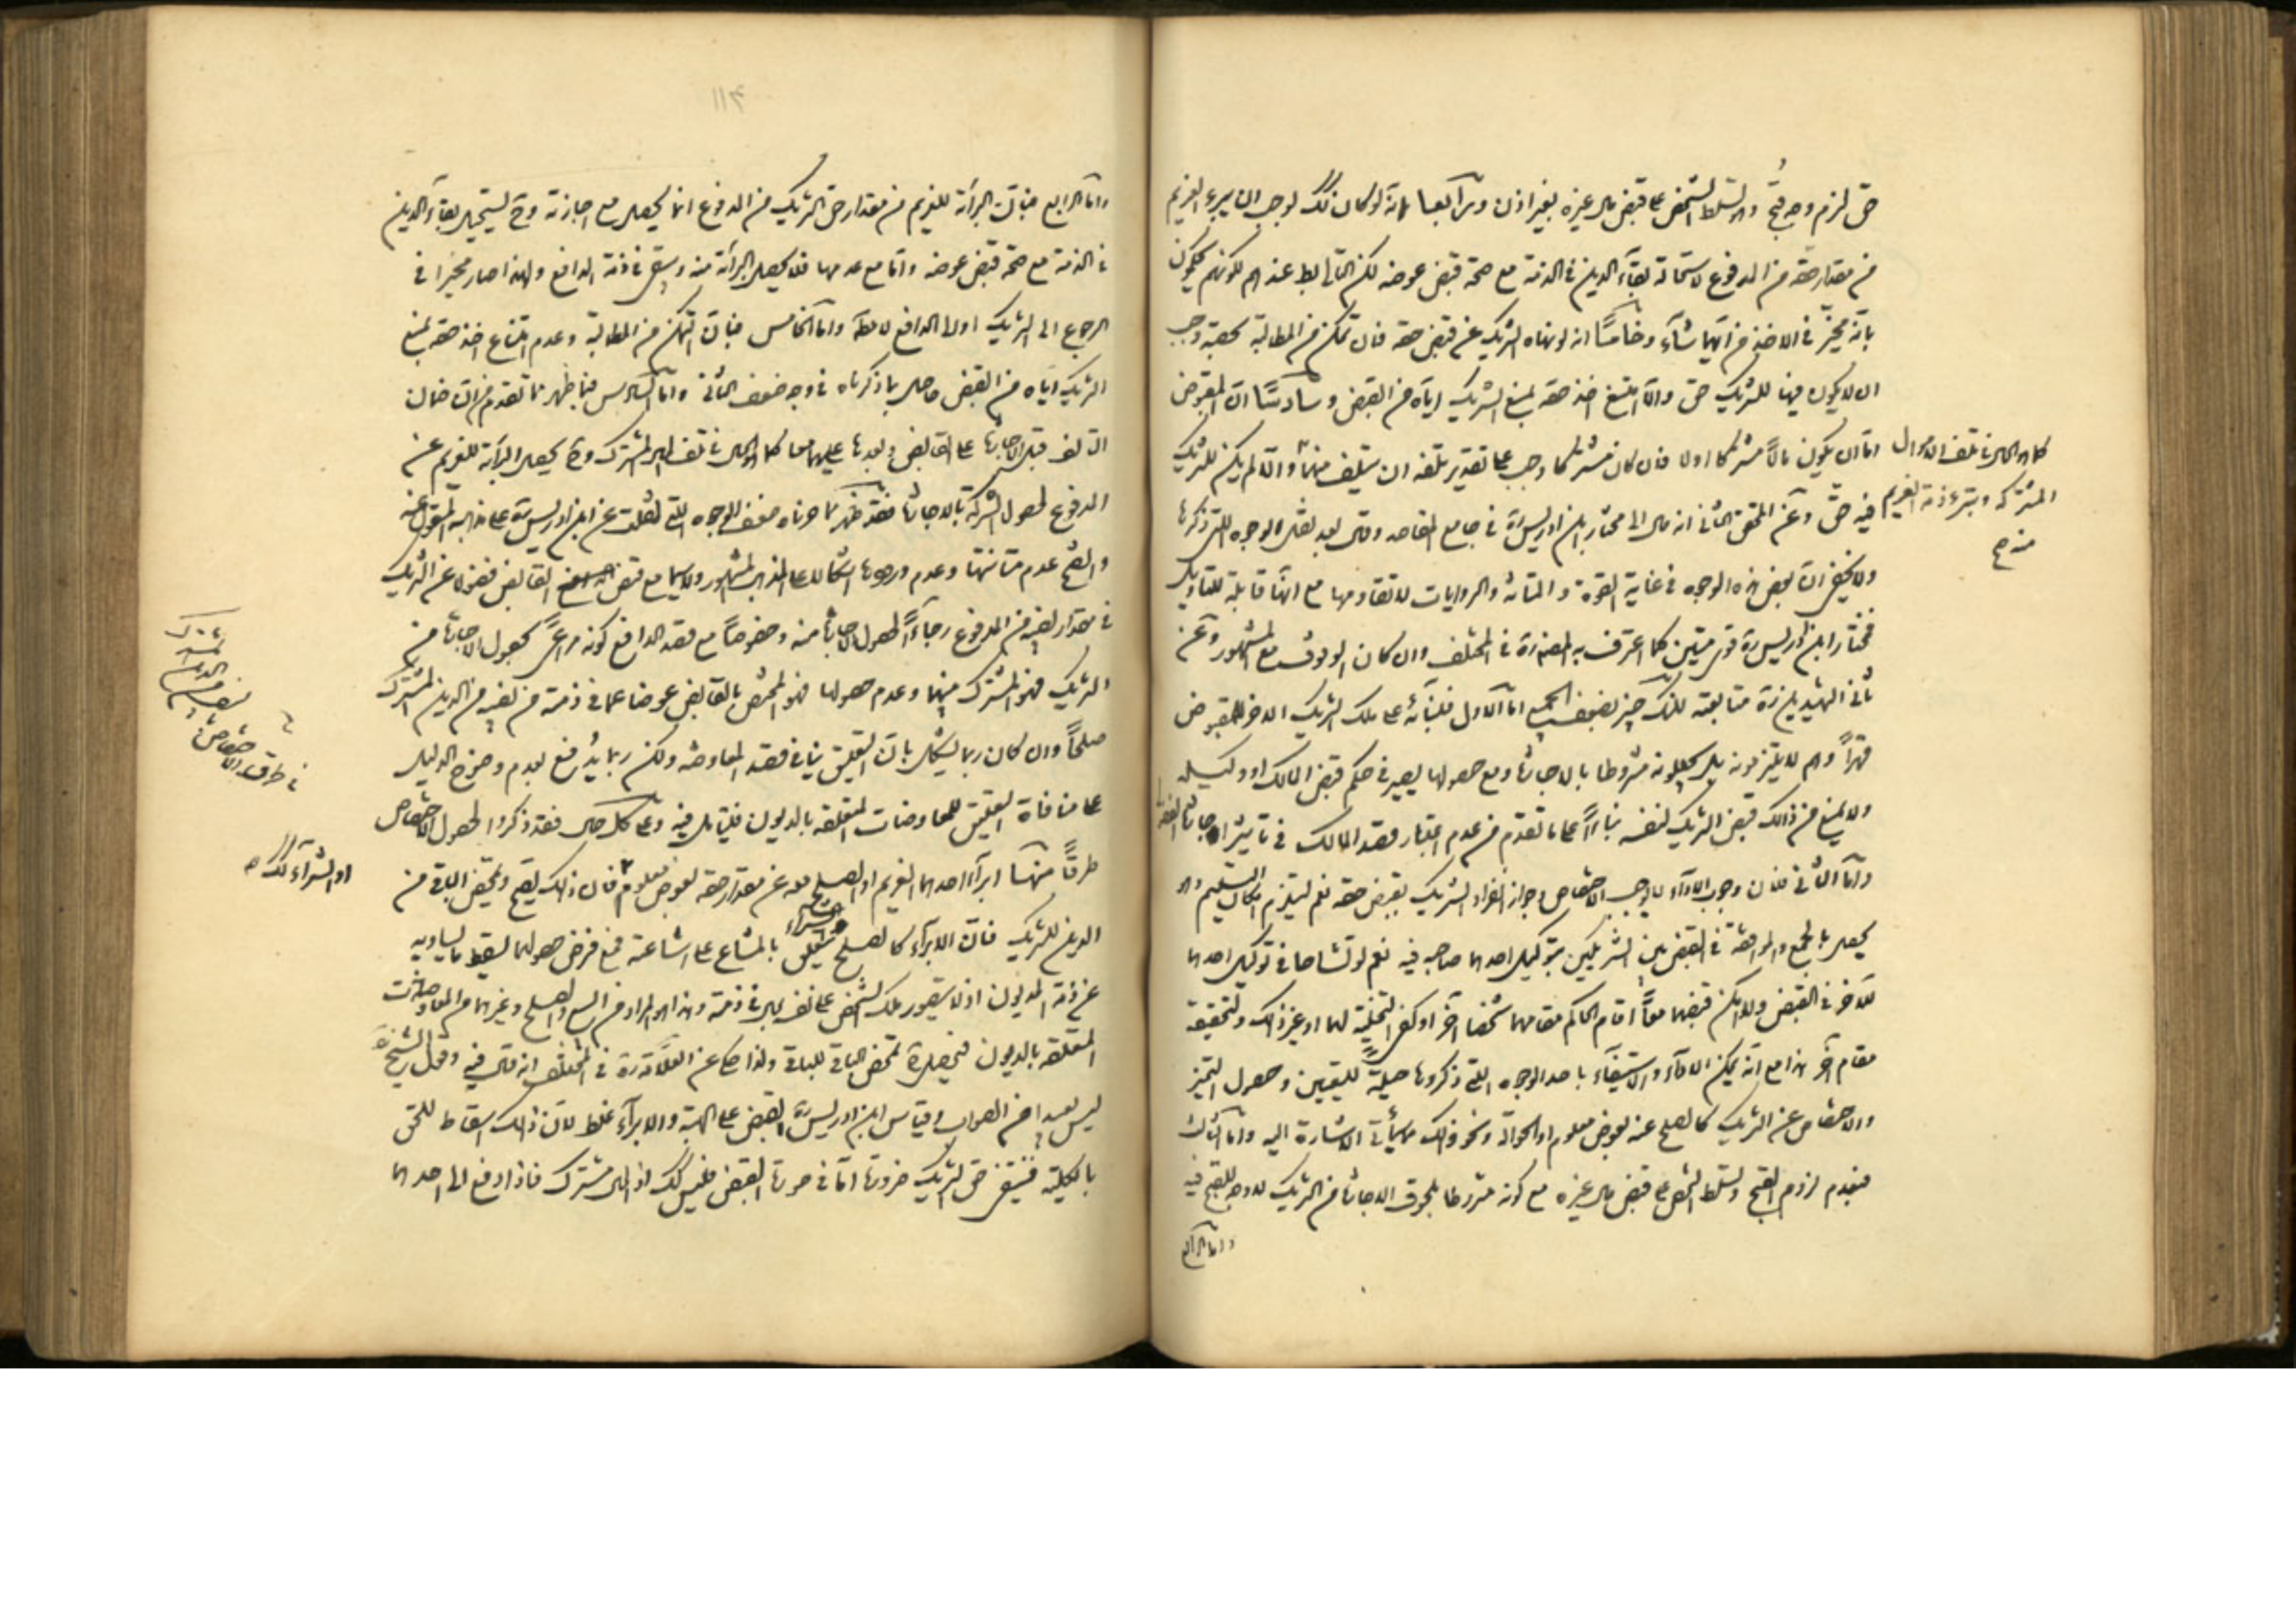 حق لزم وجه قبح وهو تسلط الشخص على قبض مال غيره بغير اذن ورابعا بانه لو كان كذلك لوجب ان يبرء الغريم
من مقدار حقه من المدفوع لاستحالة بقاء الدين في الذمة مع صحة قبض عوضه لكن التالي عندهم لكونهم يحكمون
بانه مخير في الاخذ من ايهما شاء وخامسا انه لو نهاه الشريك عن قبض حقه فان تمكن من المطالبة بحصته وجب
ان لا يكون فيها للشريك حق والا امتنع اخذ حقه بمنع الشريك اياه من القبض وسادسا ان المقبوض
اما ان يكون مالا مشتركا اولا فان كان مشتركا وجب على تقدير تلفه ان يتلف منهما والا لم يكن للشريك
كما هو الحال في تلف الاموال
المشتركة ويبرء ذمة الغريم
منه صح
فيه حق وعن المحقق الثاني انه مال الى مختار ابن ادريس ره في جامع المقاصد وقال بعد نقل الوجوه التي ذكرها
ولا يخفى ان بعض هذه الوجوه في غاية القوة والمتانة والروايات لا تقاومها مع انها قابلة للتاويل
فمختار ابن ادريس ره قوي متين كما اعترف به المصنف ره في المختلف وان كان الوقوف مع المشهور وعن
ثاني الشهيدين ره متابعته لذلك الجميع اما الاول فلبنائه على ملك الشريك الاخر للمقبوض
قهرا وهم لا يلتزمونه بل يجعلونه مشروطا بالاجازة ومع حصولها يصير في حكم قبض المالك او وكيله
ولا يمنع من ذلك قبض الشريك لنفسه بناء على ما تقدم من عدم اعتبار قصد المالك في تاثير اجازة
واما الثاني فلان وجوب الاداء لا يوجب الاختصاص وجواز انفراد الشريك بقبض حقه نعم يستلزم امكان التسليم وهو
يحصل بالجمع والموافقة في القبض بين الشريكين بتوكيل احدهما صاحبه فيه نعم لو تشاحا في توكيل احدهما
للاخر في القبض ولم يمكن قبضهما معا اقام الحاكم مقامهما شخصا آخر او كفى التخلية لهما او غير ذلك ولتحقيقه
مقام آخر هذا مع انه يمكن الاداء والاستيفاء باحد الوجوه التي ذكروها حيلة للتعيين وحصول التميز
والاختصاص عن الشريك كالصلح عنه بعوض معلوم او الحوالة ونحو ذلك مما يأتي الاشارة اليه واما الثالث
فبعدم لزوم القبح وتسلط الشخص على قبض مال غيره مع كونه مشروطا بلحوق الاجازة من الشريك لا وجه للقبح فيه
واما الرابع
١١٣
واما الرابع فبان البرائة للغريم من مقدار حق الشريك من المدفوع انما يحصل مع اجازته وح يستحيل بقاء الدين
في الذمة مع صحة قبض عوضه واما مع عدمها فلا يحصل البرائة منه ويبقى في ذمة الدافع ولهذا صار مخيرا في
الرجوع الى الشريك او الى الدافع واما الخامس فبان التمكن من المطالبة وعدم امتناع اخذ حقه بمنع
الشريك اياه من القبض حاصل بما ذكرناه في وجه ضعف الثاني واما السادس فبما ظهر مما تقدم من ان ضمان
التالف قبل الاجازة على القابض وبعدها عليهما معا كما هو الحال في تلف المال المشترك وح يحصل البرائة للغريم عن
المدفوع لحصول الشركة بالاجازة فقد ظهر مما حررناه ضعف الوجوه التي نقلت عن ابن ادريس ره على مذهبه
واتضح عدم متانتها وعدم ورودها اشكالا على المذهب المشهور ولا سيما مع قبض القابض فضولا عن الشريك
في مقدار نصيبه من المدفوع رجاء لحصول الاجازة منه وخصوصا مع قصد الدافع كونه مراعى بحصول الاجازة من
الشريك فهو المشترك بينهما وعدم حصولها فهو المختص بالقابض عوضا عما في ذمته من نصيبه من الدين المشترك
صلحا وان كان ربما يشكل بان التعليق ينافي قصد المعاوضة ولكن ربما يدفع بعدم وضوح الدليل
على منافاة التعليق للمعاوضات المتعلقة بالديون فليتامل فيه وعلى كل حال فقد ذكروا لحصول الاختصاص
في طرق الاختصاص
طرقا منها ابراء احدهما الغريم او الصلح معه عن مقدار حقه بعوض معلوم فان ذلك يصح ويتمحض الباقي من
او الشراء كذلك
الدين للشريك فان الابراء كالصلح والشراء يتعلق بالمشاع على اشاعته فمع فرض حصولهما يسقط ما يساويه
عن ذمة المديون اذ لا يتصور ملك الشخص على نفسه مالا في ذمته وهذا هو المراد من البيع والصلح وغيرهما من المعاوضات
المتعلقة بالديون فيحصل ح تمحض الباقي للباقي ولذا حكي عن العلامة ره في المختلف انه قال فيه وقول الشيخ ره
ليس بعيدا من الصواب وقياس ابن ادريس ره القبض على الهبة والابراء غلط لان ذلك اسقاط للحق
بالكلية فيبقى حق الشريك ضرورة اما في صورة القبض فليس كذلك اذ المال مشترك فاذا دفع الى احدهما